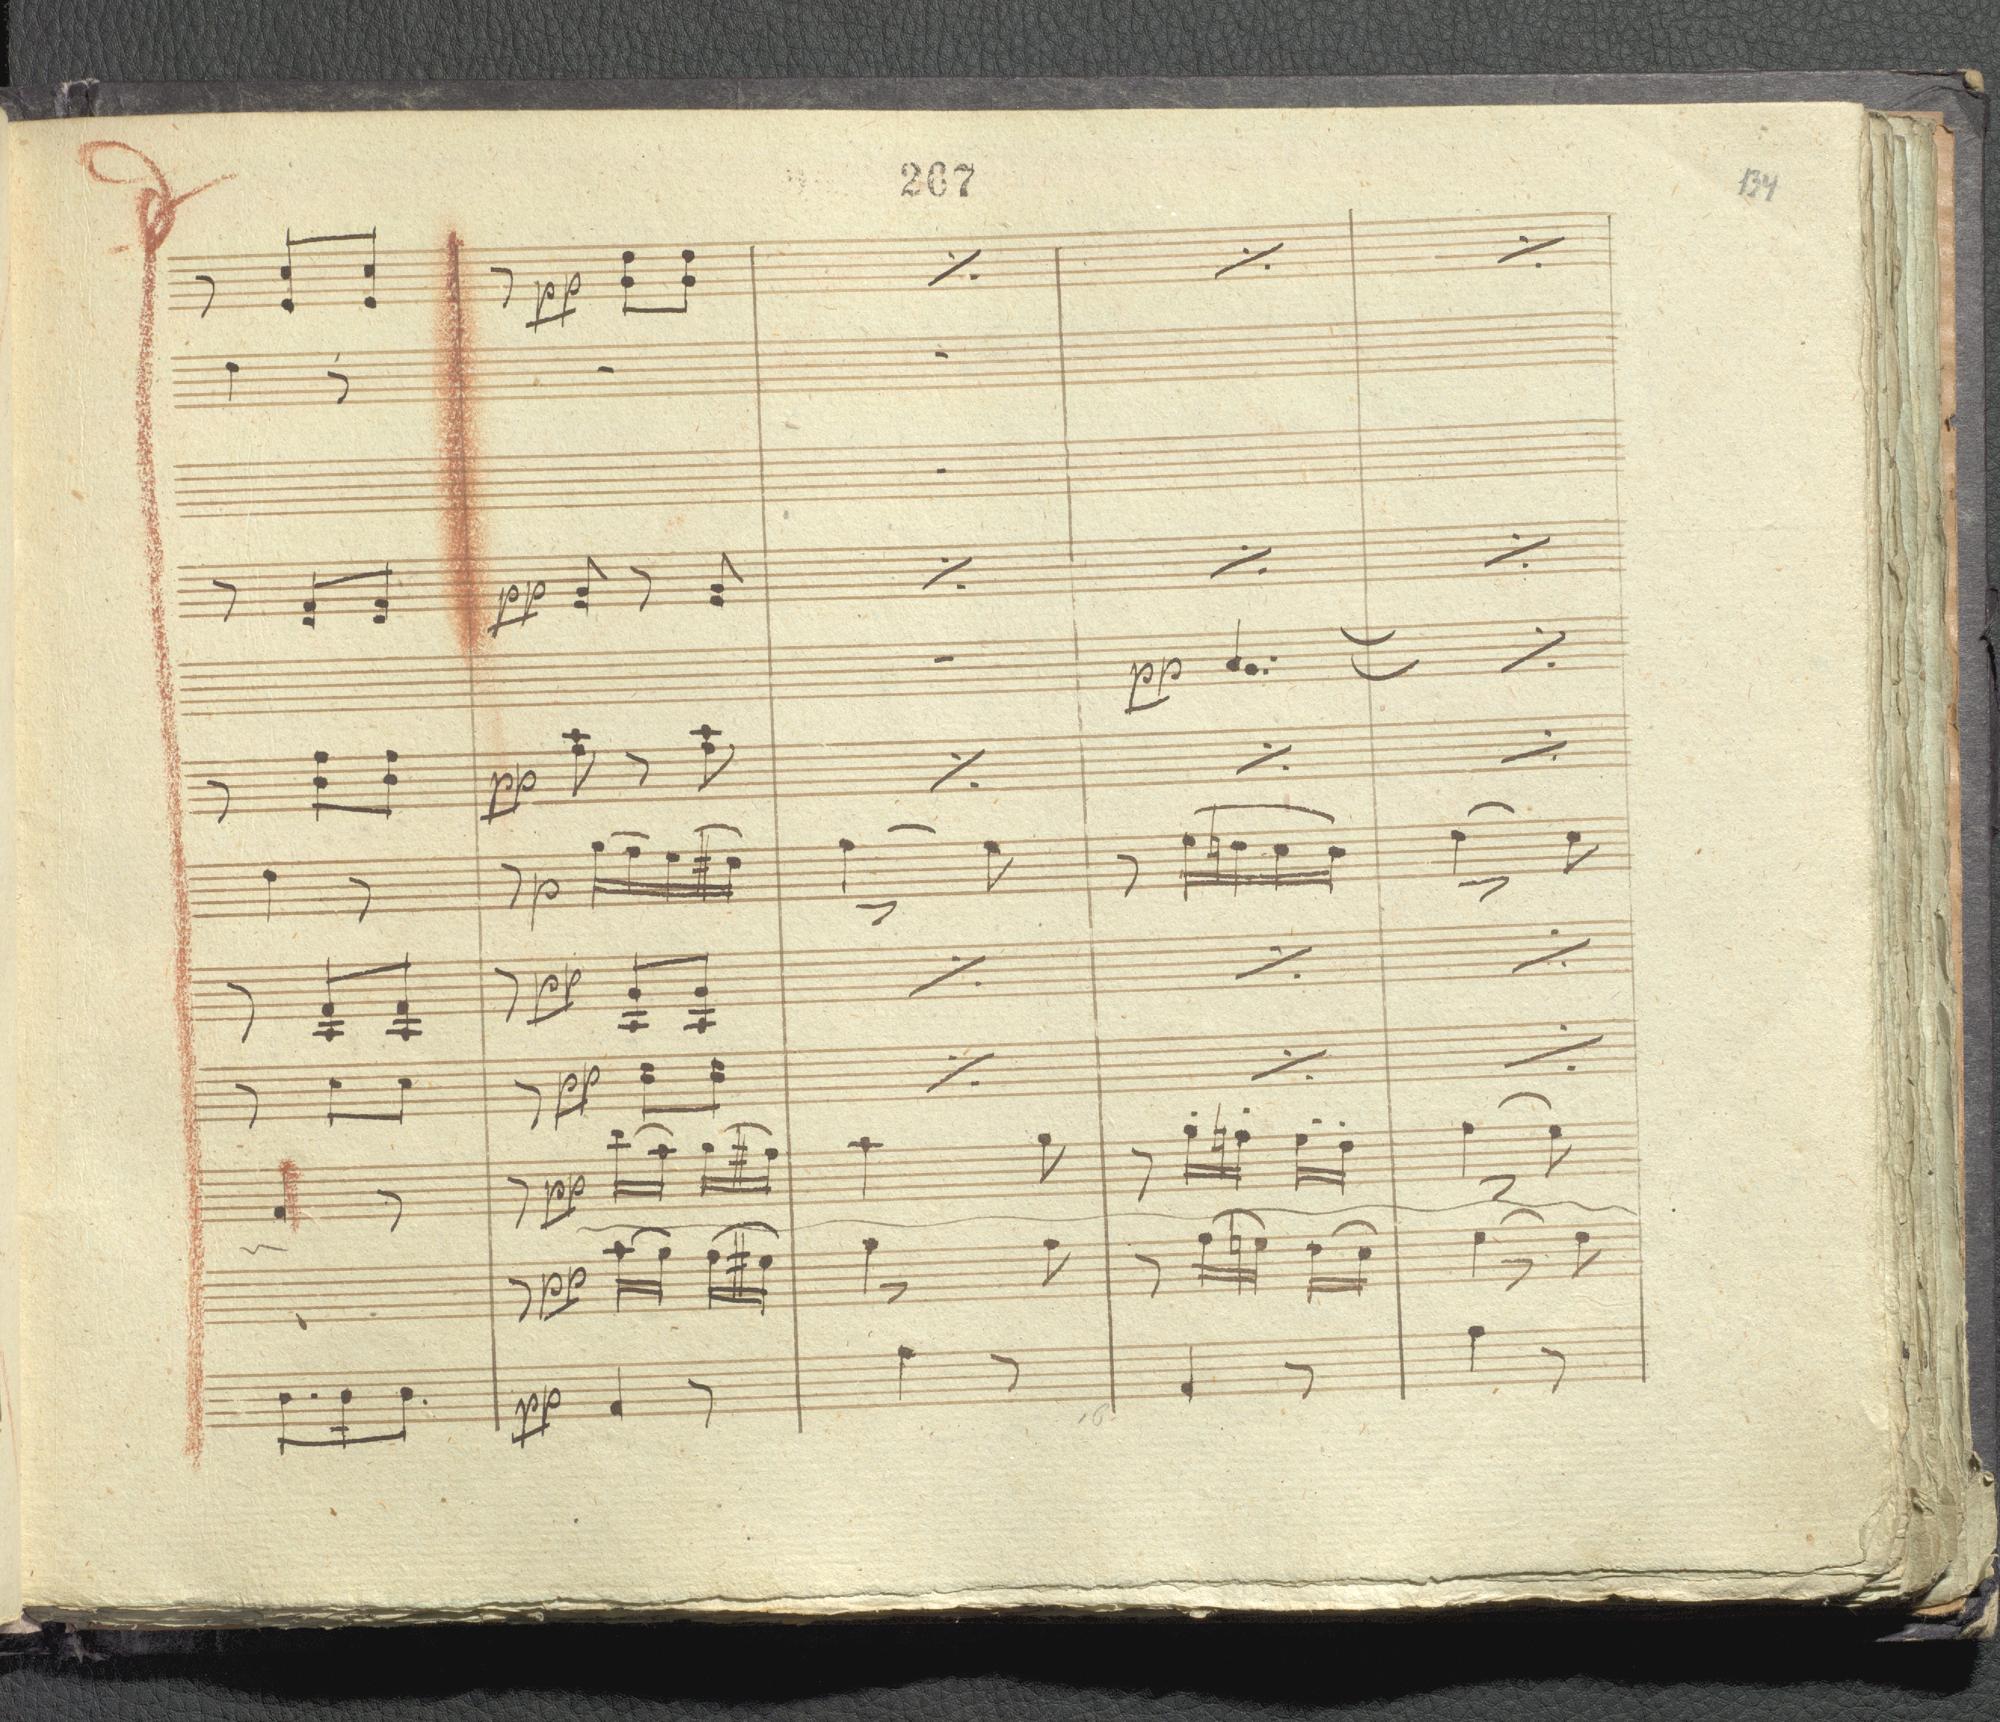 267
134
pp
pp
pp
pp
p
pp
pp
pp
pp
pp